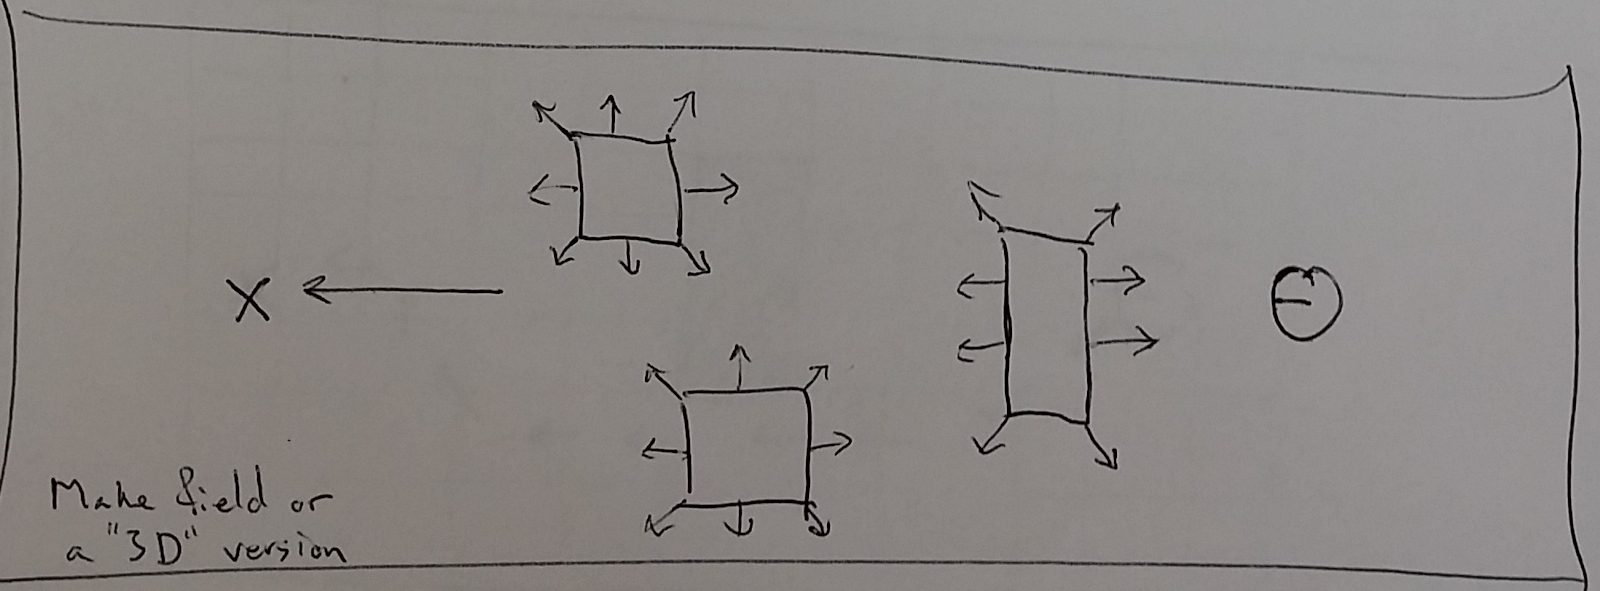 X
Make field or
a "3D" version